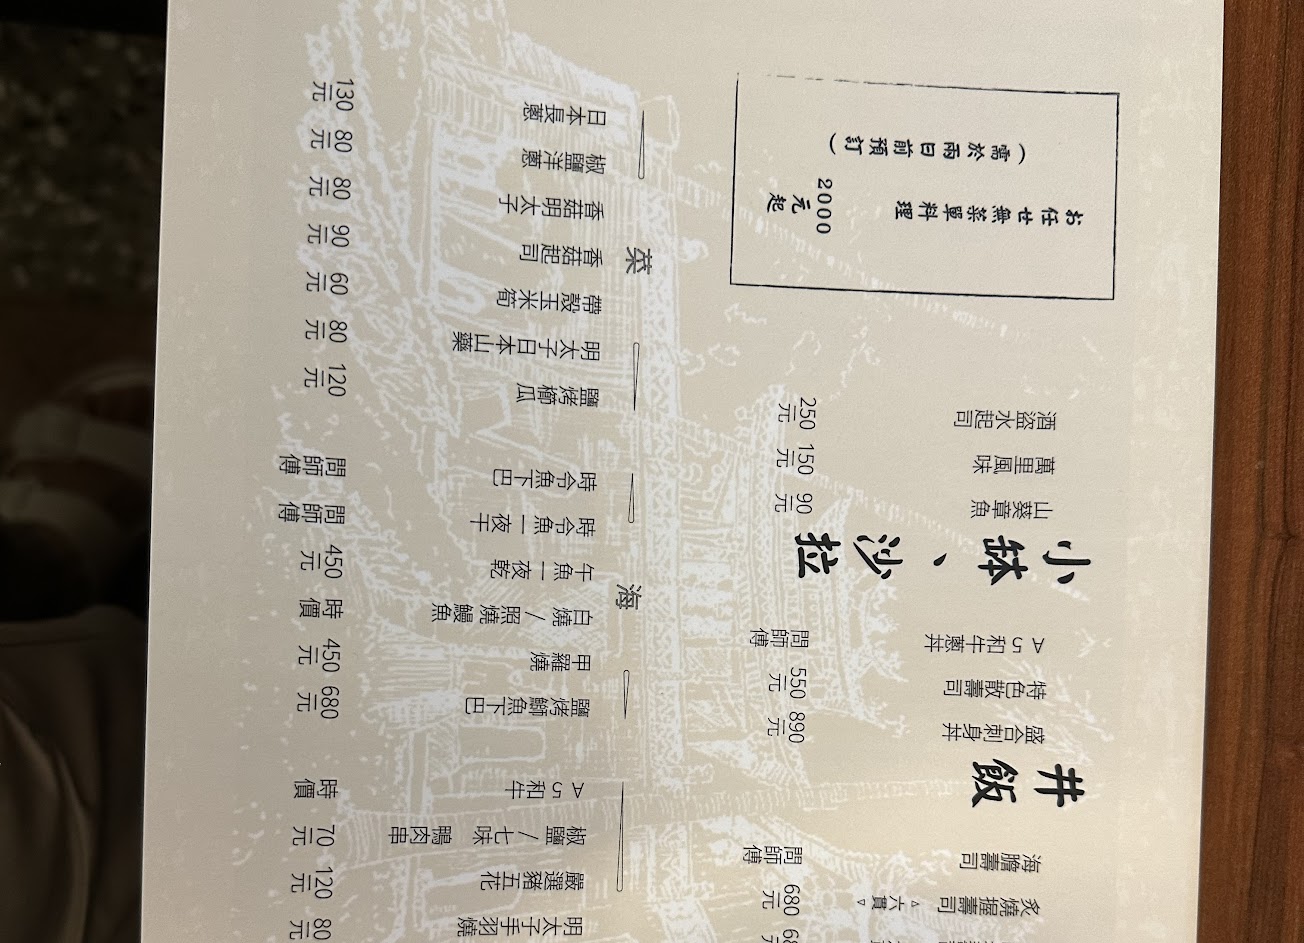 炙燒握壽司 ▵六貫▿ 680元
海膽壽司 問師傅
丼飯
盛合刺身丼 890元
特色散壽司 550元
A5和牛蔥丼 問師傅
小缽、沙拉
山葵章魚 90元
萬里風味 150元
酒盜水起司 250元
お任せ無菜單料理 2000元起
（需於兩日前預訂）
明太子手羽燒 80元
嚴選豬五花 120元
椒鹽/七味 鴨肉串 70元
A5和牛 時價
海
鹽烤鰤魚下巴 680元
甲羅燒 450元
白燒/照燒鰻魚 時價
午魚一夜乾 450元
時令魚一夜干 問師傅
時令魚下巴 問師傅
菜
鹽烤櫛瓜 120元
明太子日本山藥 80元
帶殼玉米筍 60元
香菇起司 90元
香菇明太子 80元
椒鹽洋蔥 80元
日本長蔥 130元